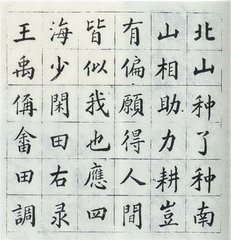 北山种了种南
山相助力耕豈
有偏願得人間
皆似我也應四
海少閑田右录
王禹偁畬田調